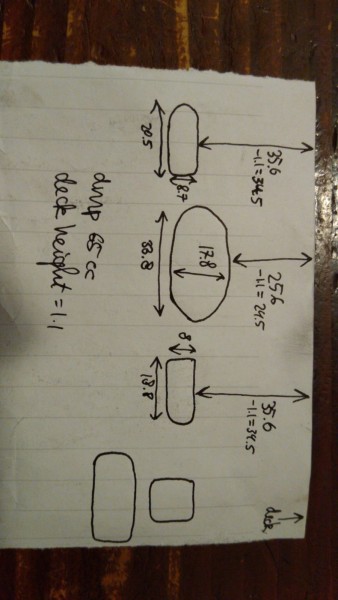 35.6
-1.1 = 34.5
25.6
-1.1 = 24.5
35.6
-1.1 = 34.5
deck
20.5
8.7
17.8
33.8
8
dmp 65cc
deck height = 1.1